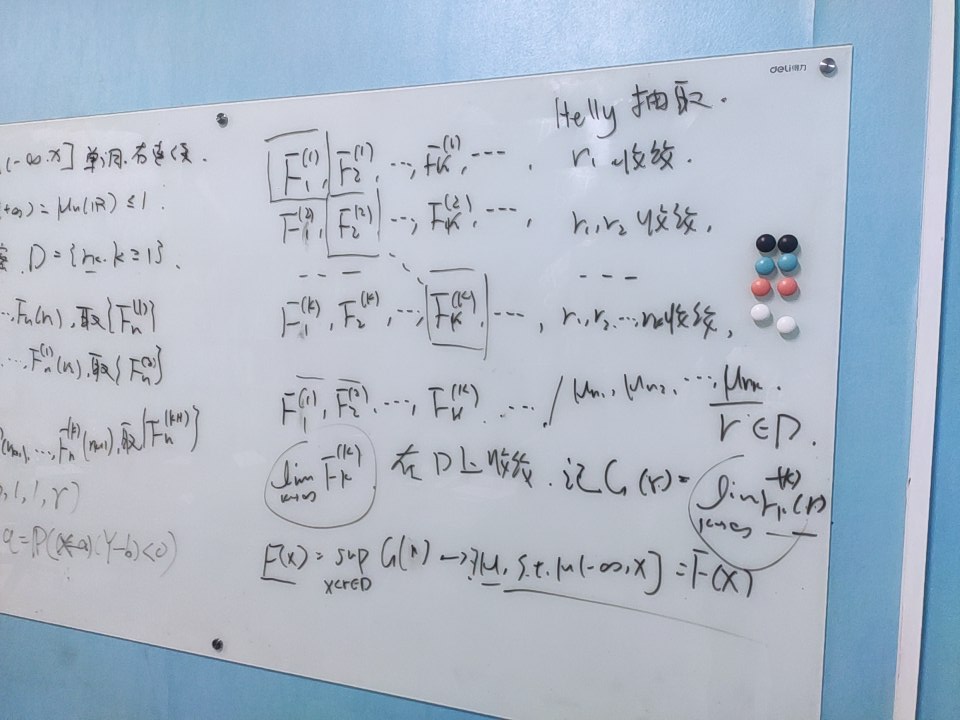 deli得力
Helly 抽取.
(-∞,x] 单调.右连续.
(+∞)=μn(ℝ)≤1.
D={rk. k≥1}.
…,Fn(n),取{Fn^(1)}
…,Fn^(1)(n),取{Fn^(2)}
,…,Fn^(k)(rk+1),取{Fn^(k+1)}
,1,1,r)
F1^(1), F2^(1), …, FK^(1), --- , r1 收敛.
F1^(2), F2^(2), …, FK^(2), --- , r1,r2 收敛.
--- ---
F1^(K), F2^(K), …, FK^(K), --- , r1,r2,…,rk收敛,
F1^(1), F2^(2), …, FK^(K) … / μn1, μn2, …, μnk
r∈D.
lim k→∞ FK^(K) 在 D上收敛. 记G(r)= lim k→∞ Fk^(k)(r)
F(x)= sup x<r∈D G(r) → ∃μ, s.t. μ(-∞,x]=F(x)